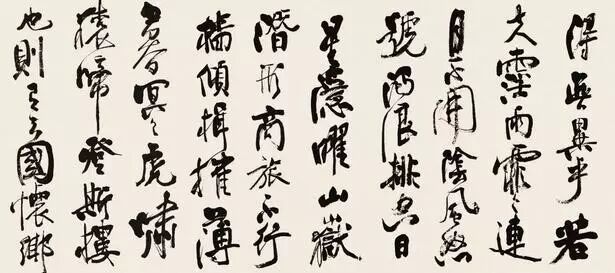 得無異乎若
夫霪雨霏々連
月不開陰風怒
號濁浪排空日
星隱曜山嶽
潛形商旅不行
檣傾楫摧薄
暮冥々虎嘯
猿啼登斯樓
也則有去國懷鄉